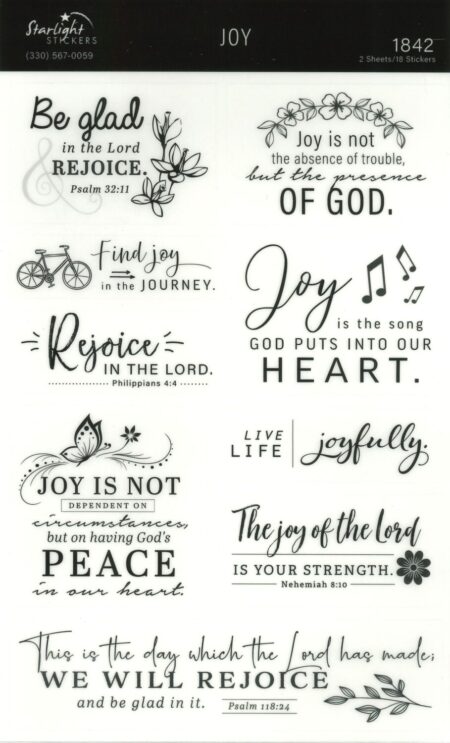 Starlight
STICKERS
(330) 567-0059
JOY
1842
2 Sheets/18 Stickers
Be glad
in the Lord
&
REJOICE.
Psalm 32:11
Joy is not
the absence of trouble,
but the presence
OF GOD.
Find joy
in the JOURNEY.
Joy
is the song
GOD PUTS INTO OUR
HEART.
Rejoice
IN THE LORD.
Philippians 4:4
LIVE
LIFE
joyfully.
JOY IS NOT
DEPENDENT ON
circumstances,
but on having God's
PEACE
in our heart.
The joy of the Lord
IS YOUR STRENGTH.
Nehemiah 8:10
This is the day which the Lord has made;
WE WILL REJOICE
and be glad in it. Psalm 118:24